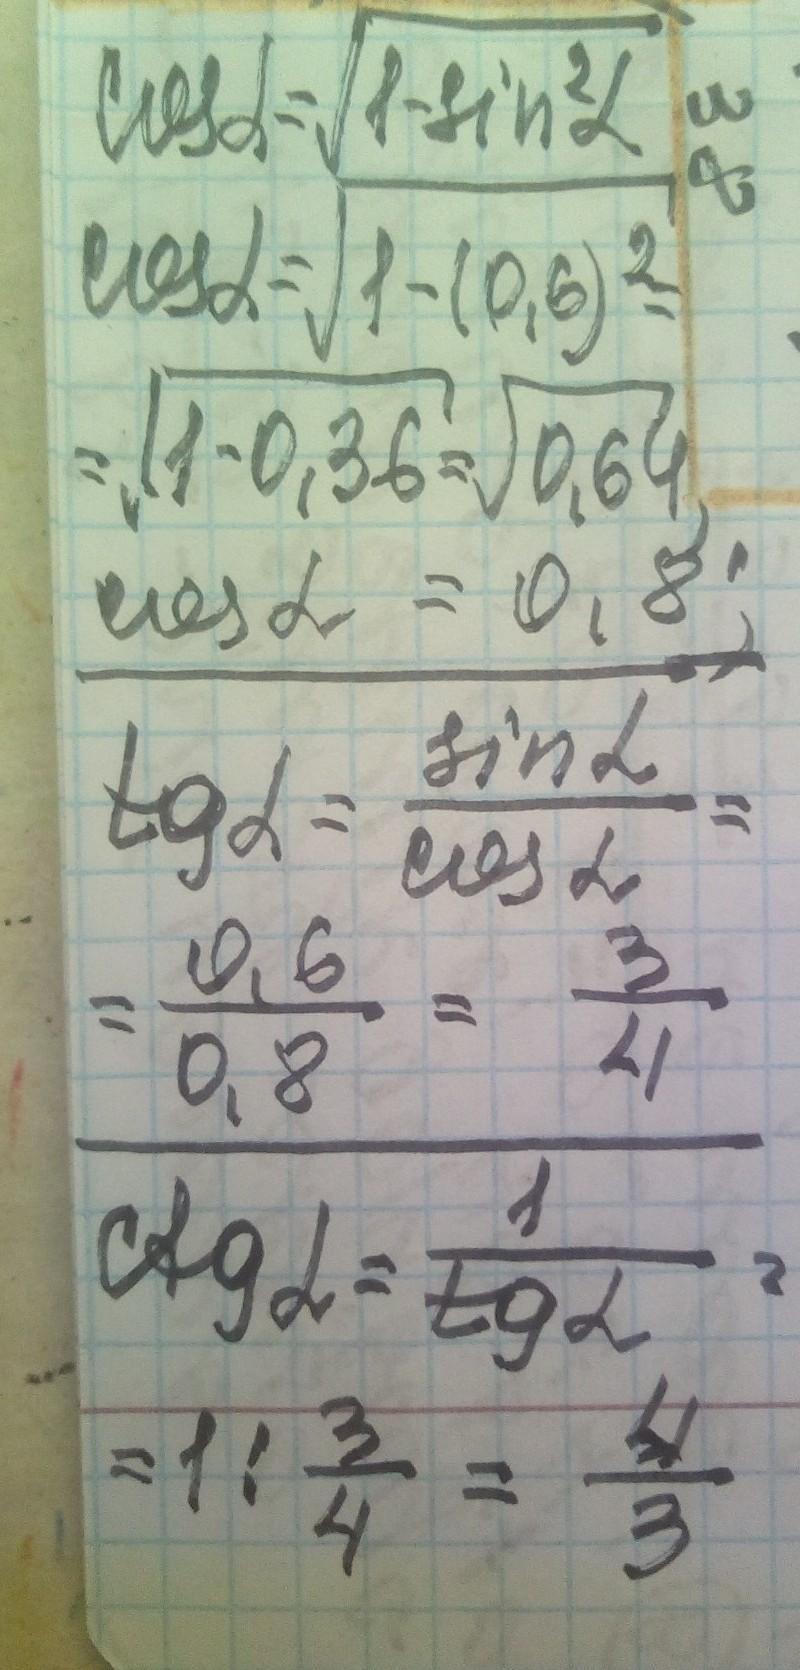 cosα=√1-sin²α
cosα=√1-(0,6)²=
=√1-0,36=√0,64,
cosα = 0,8;
tgα = sinα/cosα =
= 0,6/0,8 = 3/4
ctgα = 1/tgα =
=1:3/4 = 4/3